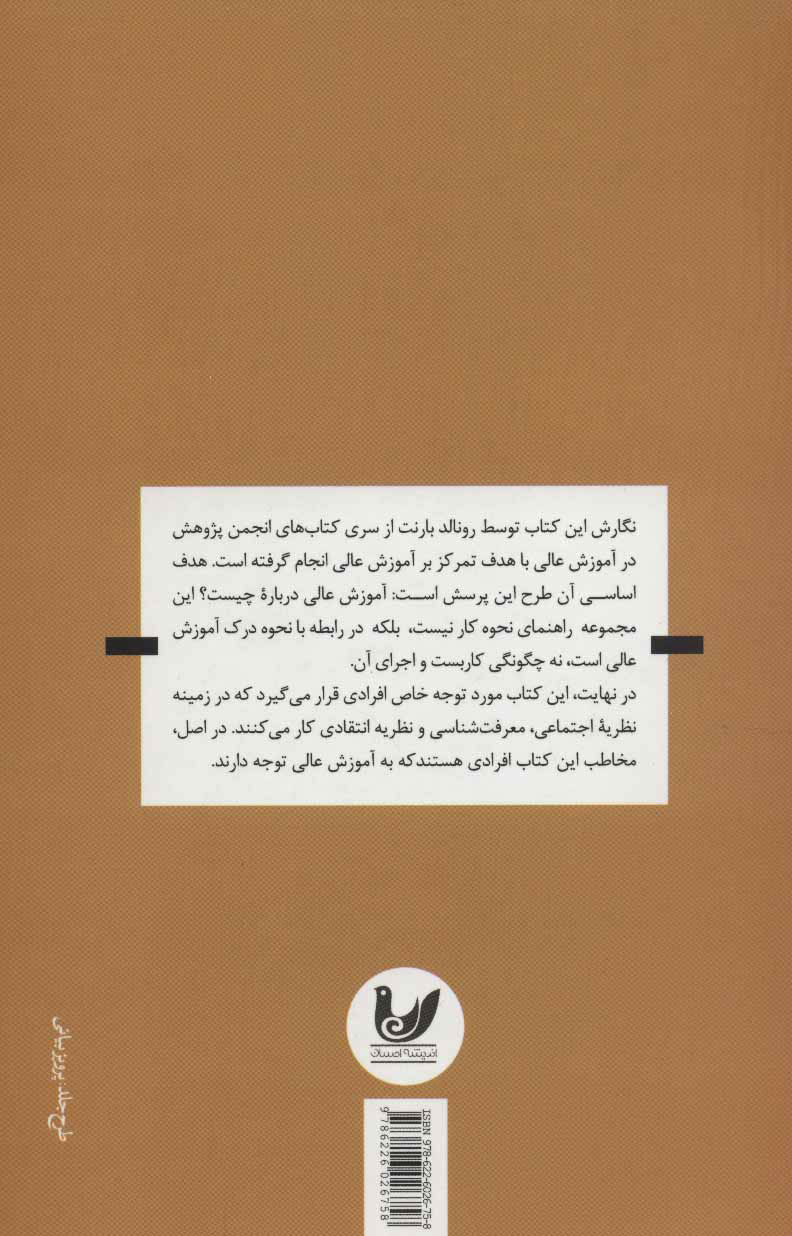 نگارش این کتاب توسط رونالد بارنت از سری کتاب‌های انجمن پژوهش
در آموزش عالی با هدف تمرکز بر آموزش عالی انجام گرفته است. هدف
اساسی آن طرح این پرسش است: آموزش عالی دربارهٔ چیست؟ این
مجموعه راهنمای نحوه کار نیست، بلکه در رابطه با نحوه درک آموزش
عالی است، نه چگونگی کاربست و اجرای آن.
در نهایت، این کتاب مورد توجه خاص افرادی قرار می‌گیرد که در زمینه
نظریهٔ اجتماعی، معرفت‌شناسی و نظریه انتقادی کار می‌کنند. در اصل،
مخاطب این کتاب افرادی هستندکه به آموزش عالی توجه دارند.
اندیشه احسان
طرح جلد: پرویز بیانی
ISBN 978-622-6026-75-8
9 786226 026758